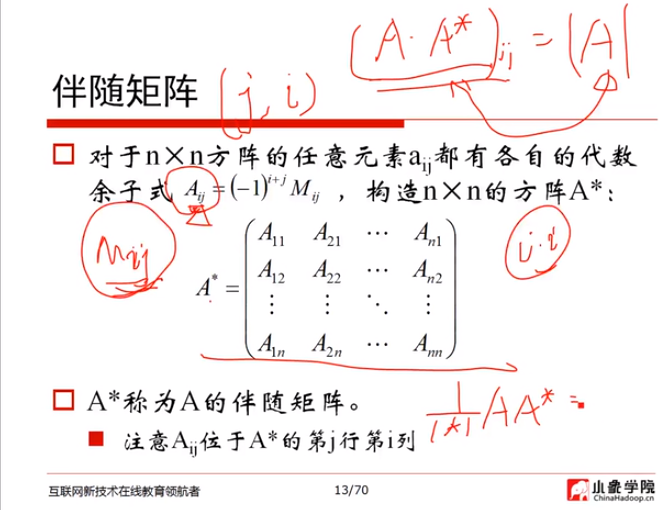 (A · A*)ij = |A|
伴随矩阵 (j, i)
□ 对于n×n方阵的任意元素aij都有各自的代数
余子式 Aij = (-1)^{i+j} Mij ，构造n×n的方阵A*：
Mij
A* = ( A11 A21 ⋯ An1
A12 A22 ⋯ An2
⋮ ⋮ ⋱ ⋮
A1n A2n ⋯ Ann )
□ A*称为A的伴随矩阵。
1/|A| AA* =
■ 注意Aij位于A*的第j行第i列
互联网新技术在线教育领航者 13/70 小象学院
ChinaHadoop.cn